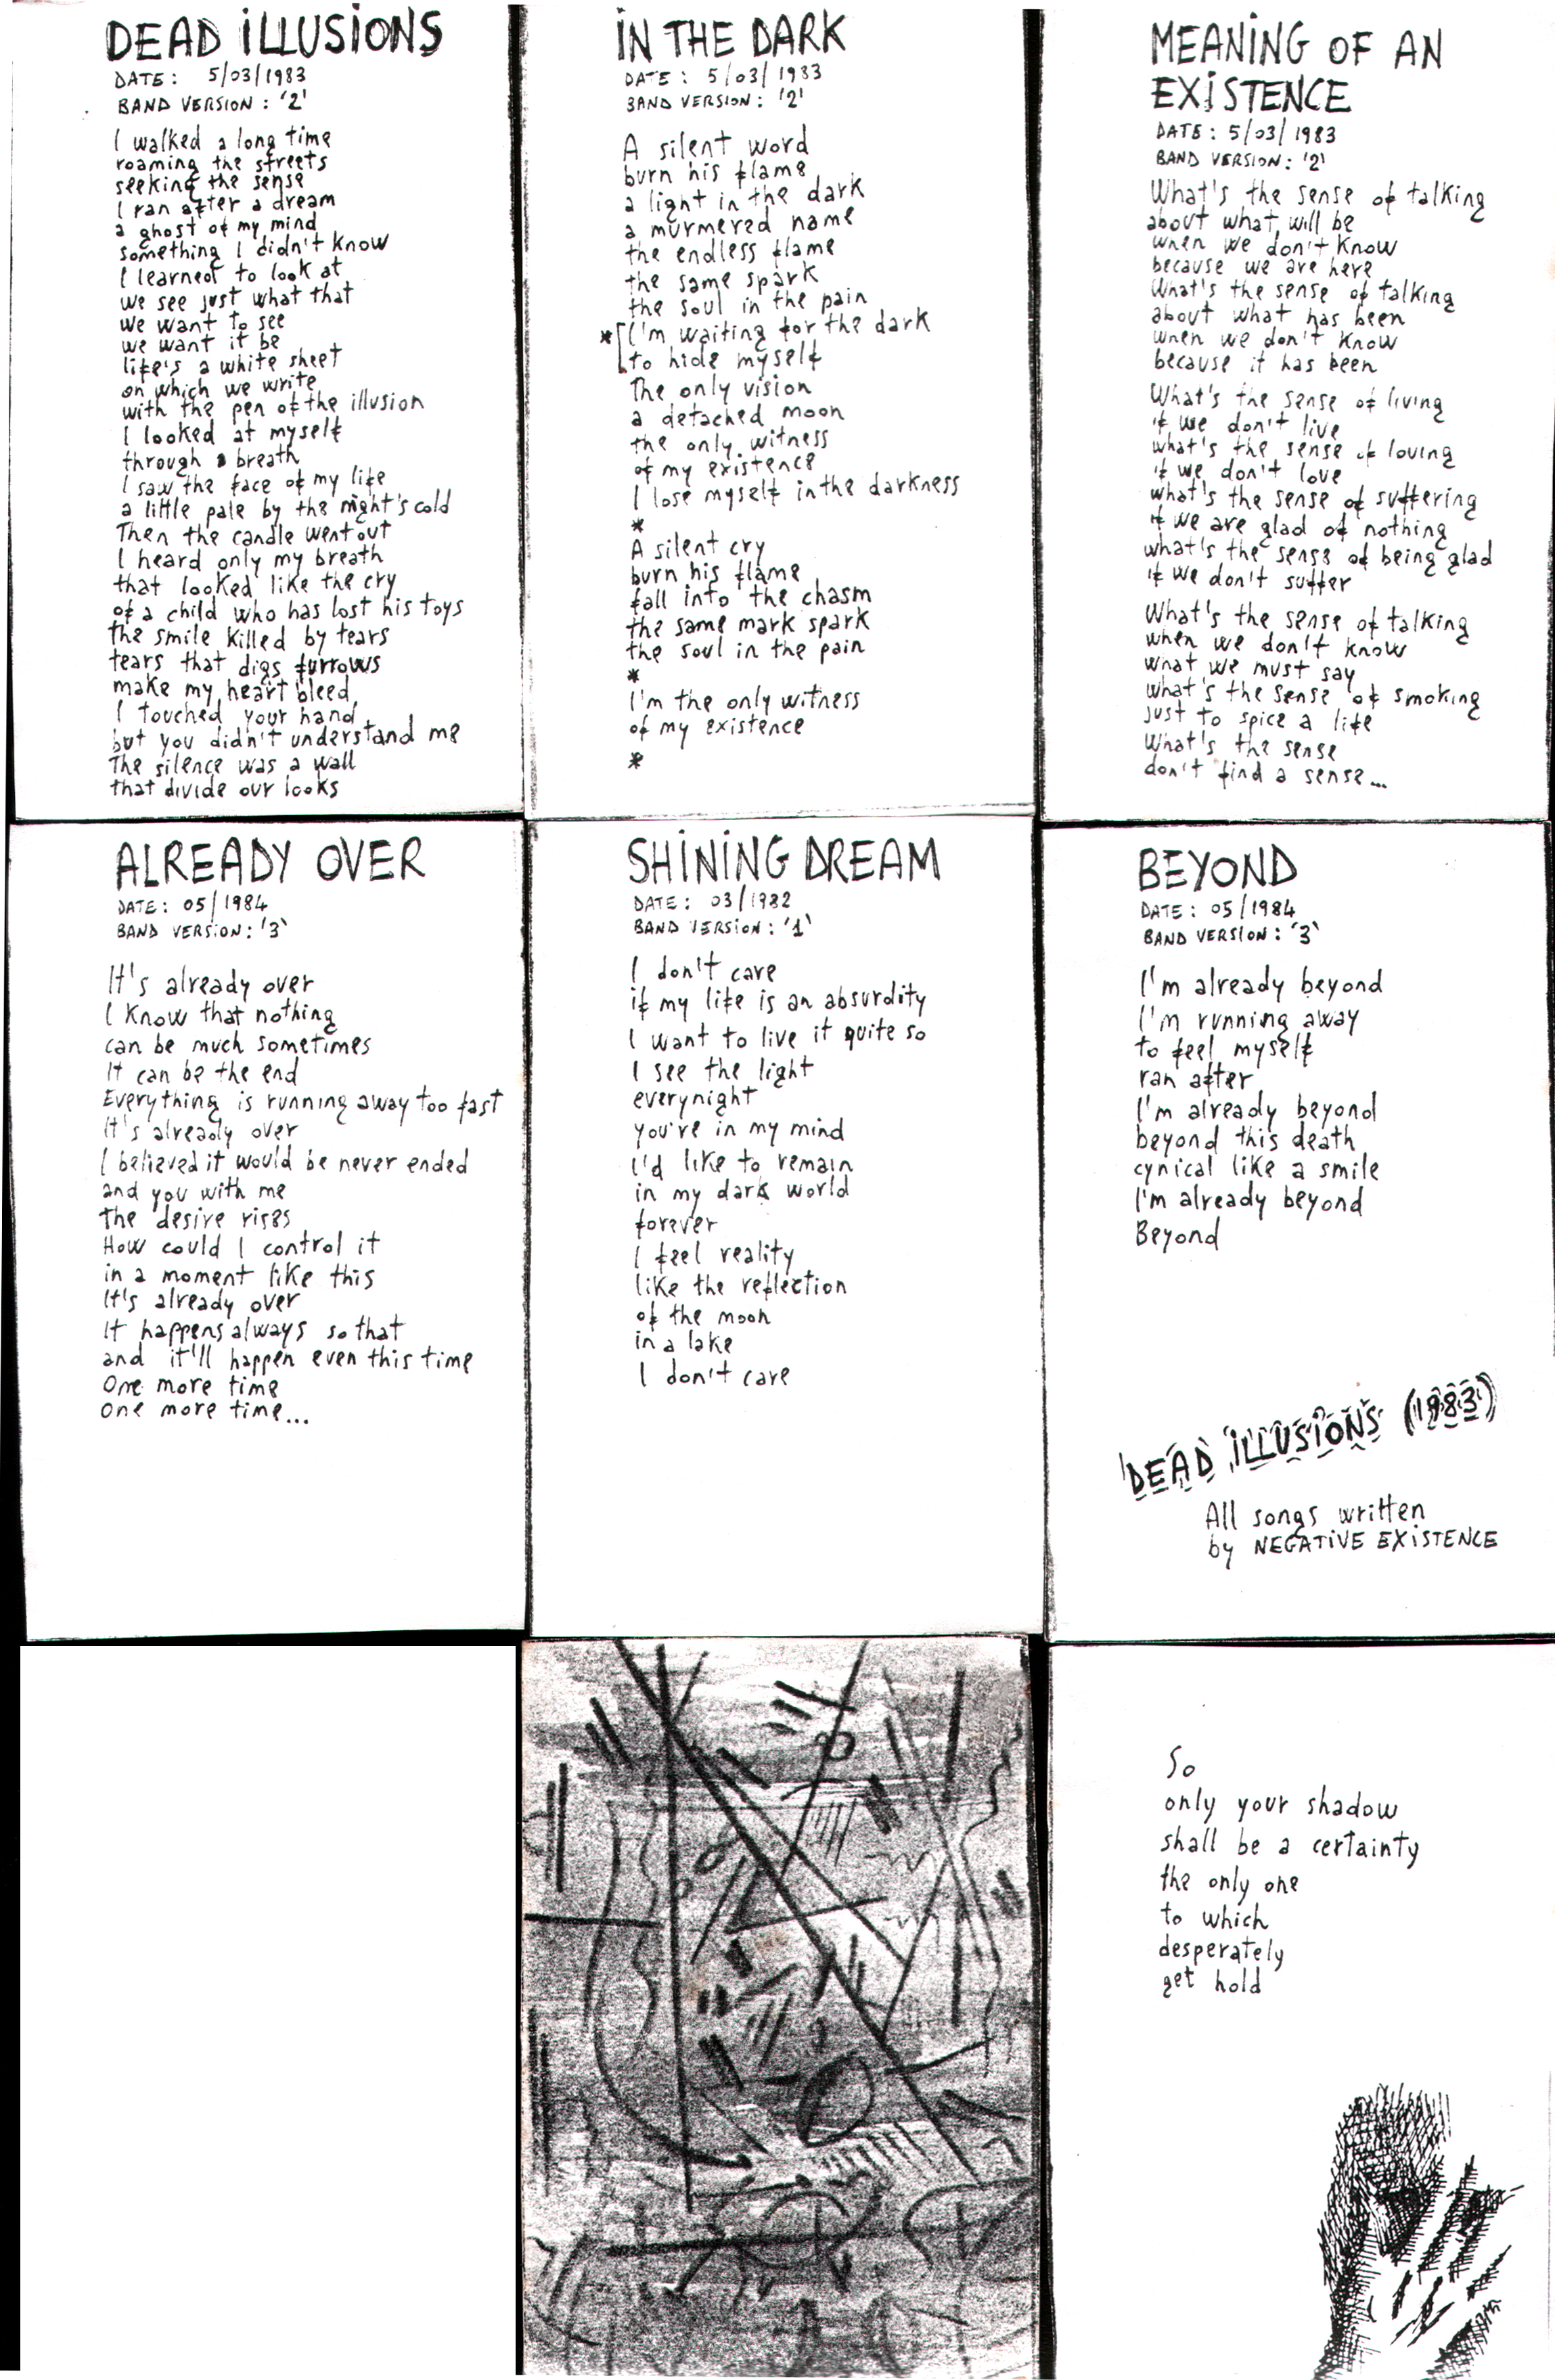 DEAD ILLUSIONS
DATE: 5/03/1983
BAND VERSION: '2'
I walked a long time
roaming the streets
seeking the sense
I ran after a dream
a ghost of my mind
something I didn't know
I learned to look at
we see just what that
we want to see
we want it be
life's a white sheet
on which we write
with the pen of the illusion
I looked at myself
through a breath
I saw the face of my life
a little pale by the night's cold
Then the candle went out
I heard only my breath
that looked like the cry
of a child who has lost his toys
the smile killed by tears
tears that digs furrows
make my heart bleed
I touched your hand
but you didn't understand me
The silence was a wall
that divide our looks
IN THE DARK
DATE: 5/03/1983
BAND VERSION: '2'
A silent word
burn his flame
a light in the dark
a murmered name
the endless flame
the same spark
the soul in the pain
* [I'm waiting for the dark
to hide myself
The only vision
a detached moon
the only witness
of my existence
I lose myself in the darkness
*
A silent cry
burn his flame
fall into the chasm
the same mark spark
the soul in the pain
*
I'm the only witness
of my existence
*
MEANING OF AN
EXISTENCE
DATE: 5/03/1983
BAND VERSION: '2'
What's the sense of talking
about what will be
when we don't know
because we are here
What's the sense of talking
about what has been
when we don't know
because it has been
What's the sense of living
if we don't live
what's the sense of loving
if we don't love
what's the sense of suffering
if we are glad of nothing
what's the sense of being glad
if we don't suffer
What's the sense of talking
when we don't know
what we must say
what's the sense of smoking
just to spice a life
What's the sense
don't find a sense...
ALREADY OVER
DATE: 05/1984
BAND VERSION: '3'
It's already over
I know that nothing
can be much sometimes
It can be the end
Everything is running away too fast
It's already over
I believed it would be never ended
and you with me
The desire rises
How could I control it
in a moment like this
It's already over
It happens always so that
and it'll happen even this time
One more time
One more time...
SHINING DREAM
DATE: 03/1982
BAND VERSION: '1'
I don't care
if my life is an absurdity
I want to live it quite so
I see the light
everynight
you're in my mind
I'd like to remain
in my dark world
forever
I feel reality
like the reflection
of the moon
in a lake
I don't care
BEYOND
DATE: 05/1984
BAND VERSION: '3'
I'm already beyond
I'm running away
to feel myself
ran after
I'm already beyond
beyond this death
cynical like a smile
I'm already beyond
Beyond
DEAD ILLUSIONS (1983)
All songs written
by NEGATIVE EXISTENCE
So
only your shadow
shall be a certainty
the only one
to which
desperately
get hold